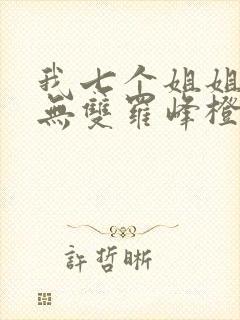 我七个姐姐
無雙羅峰橙
許哲晰